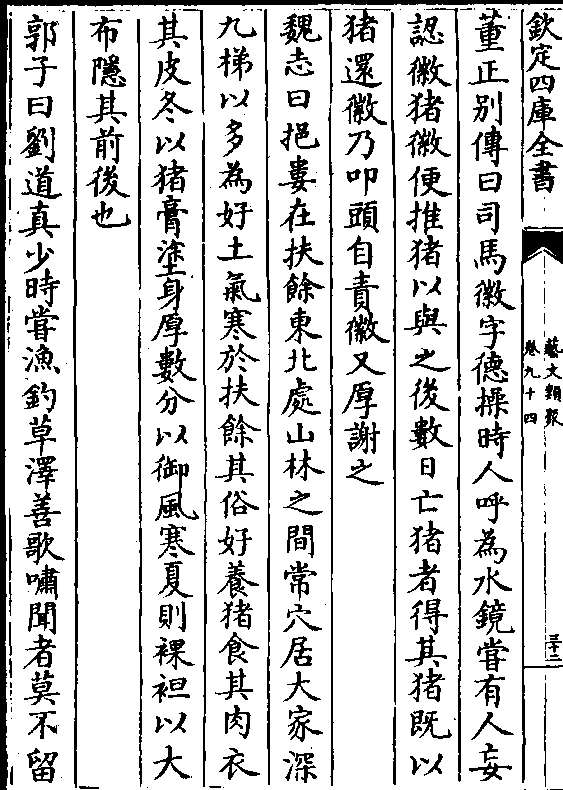 欽定四庫全書
藝文類聚
卷九十四
三十二
董正别傳曰司馬徽字德操時人呼為水鏡嘗有人妄
認徽猪徽便推猪以與之後數日亡猪者得其猪既以
猪還徽乃叩頭自責徽又厚謝之
魏志曰挹婁在扶餘東北處山林之間常穴居大家深
九梯以多為好土氣寒於扶餘其俗好養猪食其肉衣
其皮冬以猪膏塗身厚數分以御風寒夏則裸袒以大
布隱其前後也
郭子曰劉道真少時嘗漁釣草澤善歌嘯聞者莫不留